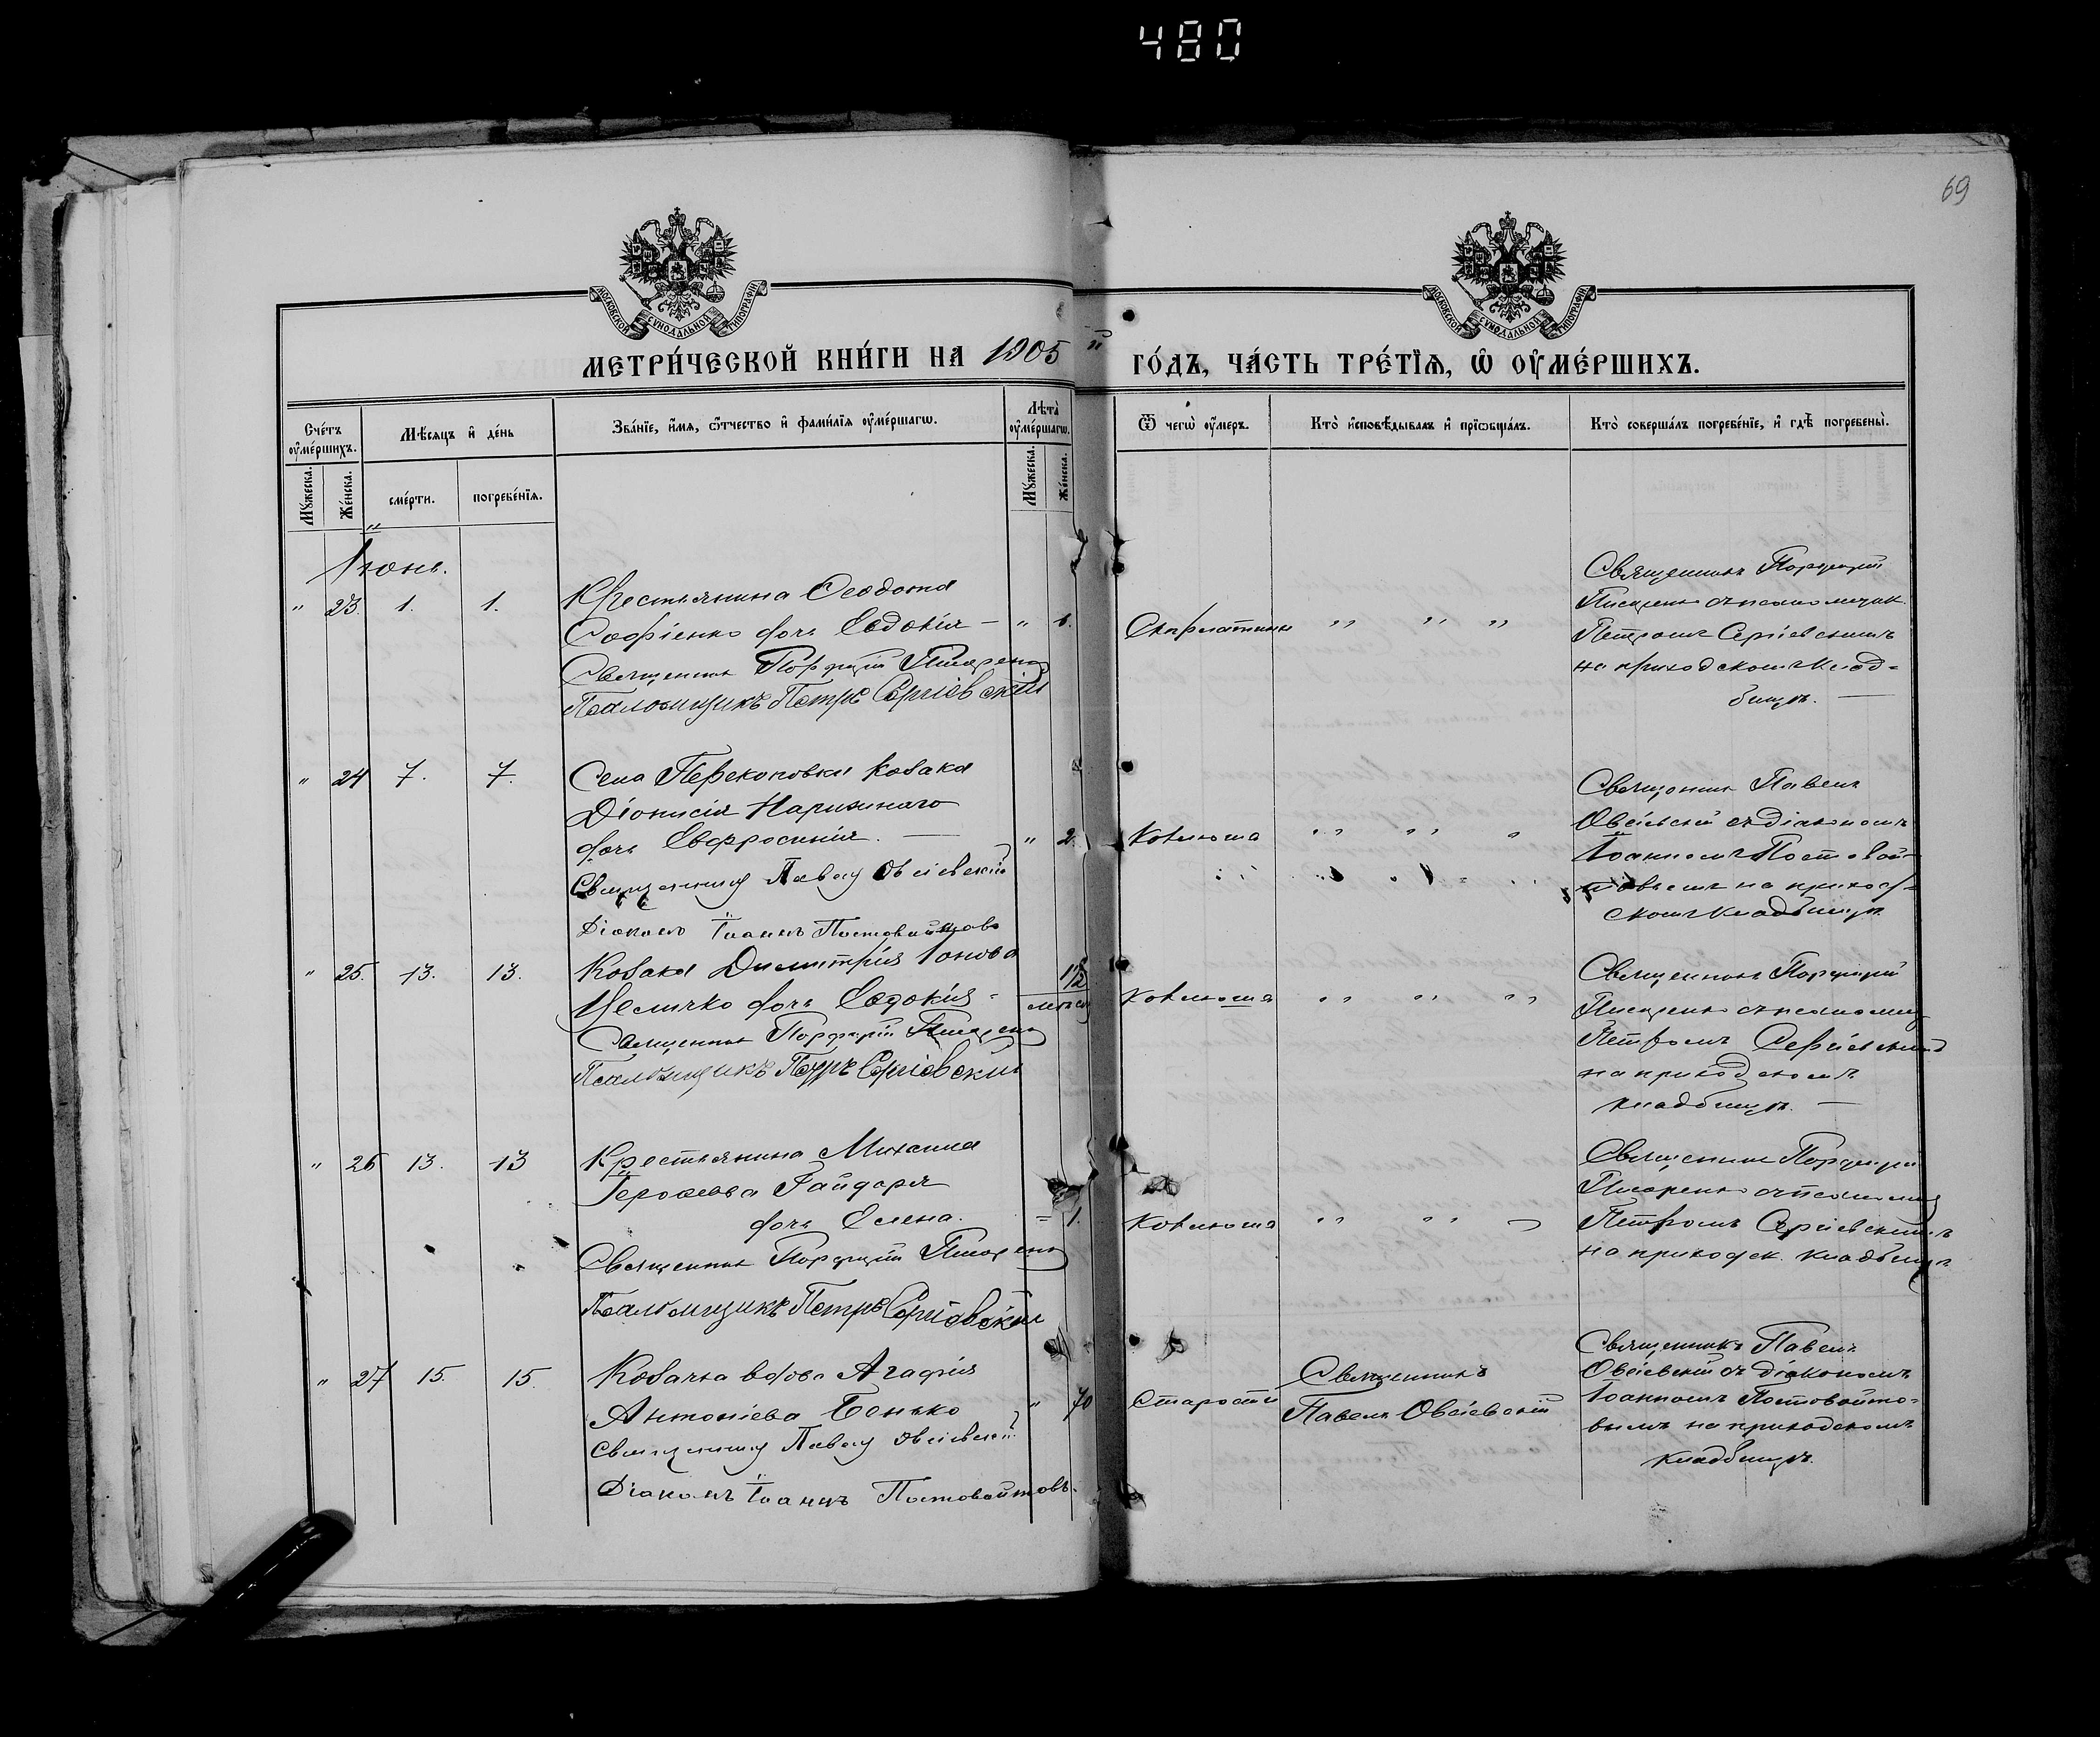 480
69
МОСКОВСКОЙ СѴНОДАЛЬНОЙ ТИПОГРАФІИ
МОСКОВСКОЙ СѴНОДАЛЬНОЙ ТИПОГРАФІИ
МЕТРИ́ЧЕСКОЙ КНИ́ГИ НА 1905 й ГО́ДЪ, ЧА́СТЬ ТРЕ́ТЇѦ, Ѡ҆ ОУ҆МЕ́РШИХЪ.
Сче́тъ оу҆ме́ршихъ.
Мꙋ́жеска.
Же́нска.
Мѣ́сѧцъ и҆ де́нь
сме́рти.
погребе́нїѧ.
Зва́нїе, и҆́мѧ, ѻ҆́тчество и҆ фами́лїѧ оу҆ме́ршагѡ.
Лѣ́та оу҆ме́ршагѡ.
Мꙋ́жеска.
Же́нска.
Ѿ чегѡ̀ оу҆́меръ.
Кто̀ и҆сповѣ́дывалъ и҆ прїѡбща́лъ.
Кто̀ соверша́лъ погребе́нїе, и҆ гдѣ̀ погребены̀.
Іюнь.
" 23. 1. 1.
Крестьянина Ѳеодота
Софіенко дочь Евдокія — "
Священникъ Порфирій Писаренко
Псаломщикъ Петръ Сергіевскій
Скарлатины " " "
Священникъ Порфирій
Писаренко съ псаломщик.
Петромъ Сергіевскимъ
на приходскомъ клад-
бищѣ. —
" 24 7. 7.
Села Перекоповки козака
Діонисія Нарижнаго
дочь Евфросинія. — " 2.
Священникъ Павелъ Овсіевскій
Діаконъ Іоаннъ Постовойтовъ
Коклюша " " "
Священникъ Павелъ
Овсіевскій съ діакономъ
Іоанномъ Постовой-
товымъ на приход-
скомъ кладбищѣ
" 25. 13. 13.
Козака Димитрія Іонова
дочь Евдокія - 1/2
Священникъ Порфирій Писаренко
Псаломщикъ Петръ Сергіевскій
Коклюша " " "
Священникъ Порфирій
Писаренко съ псаломщ
Петромъ Сергіевскимъ
на приходскомъ
кладбищѣ. —
" 26 13. 13
Крестьянина Михаила
Гайдаря
дочь Елена. = 1.
Священникъ Порфирій Писаренко
Псаломщикъ Петръ Сергіевскій
Коклюша " "
Священникъ Порфирій
Писаренко съ псаломщ
Петромъ Сергіевскимъ
на приходск. кладбищѣ
" 27 15. 15.
Козачка вдова Агафія
Антоніева Бонько " 70
Священникъ Павелъ Овсіевскій
Діаконъ Іоаннъ Постовойтовъ.
Старости
Священникъ
Павелъ Овсіевскій
Священникъ Павелъ
Овсіевскій съ діакономъ
Іоанномъ Постовойто-
вымъ на приходскомъ
кладбищѣ.